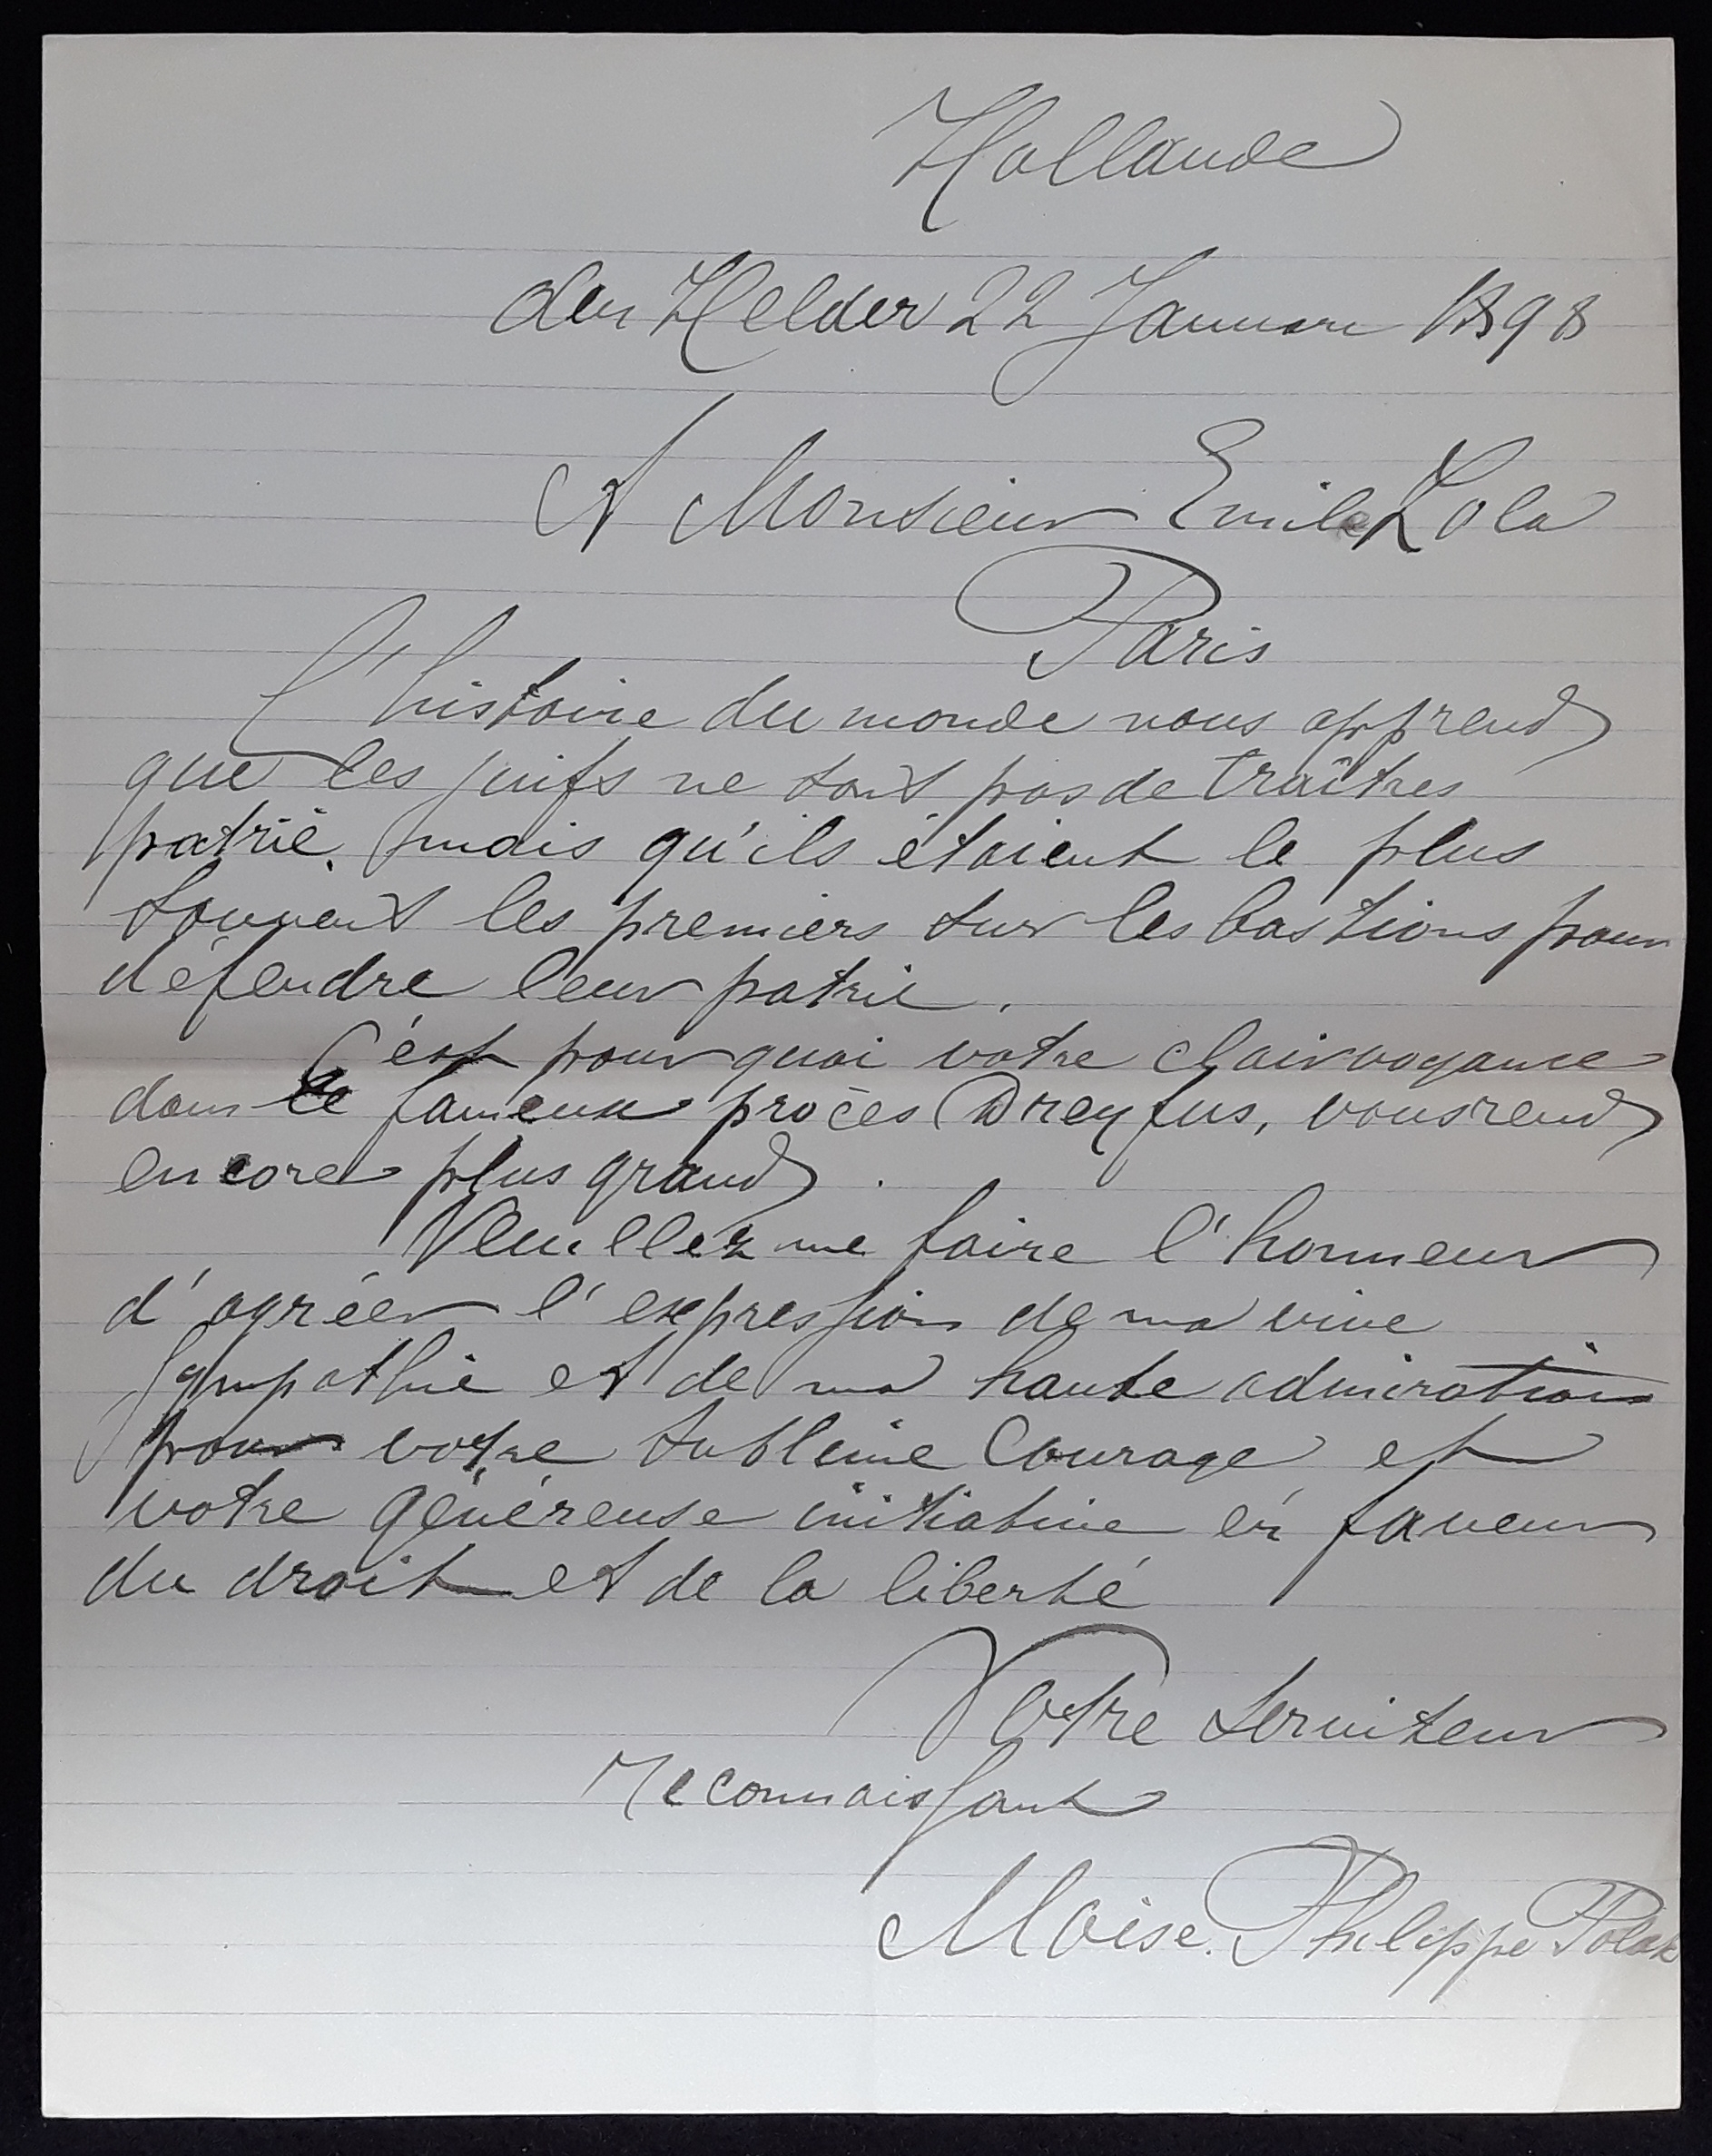 Hollande
den Helder 22 Januari 1898
A Monsieur Emile Zola
Paris
l'histoire du monde nous apprend
que les juifs ne sont pas de traîtres
patrie, mais qu'ils étaient le plus
souvent les premiers sur les bastions pour
défendre leur patrie.
C'est pourquoi votre clairvoyance
dans le fameux procès Dreyfus, vous rend
encore plus grand.
Veuillez me faire l'honneur
d'agréer l'expression de ma vive
sympathie et de ma haute admiration
pour votre sublime courage et
votre généreuse initiative en faveur
du droit et de la liberté
Votre serviteur
reconnaissant
Moïse. Philippe Polak